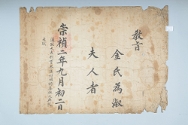 敎旨
金氏爲淑
夫人者
崇禎二年九月初二日